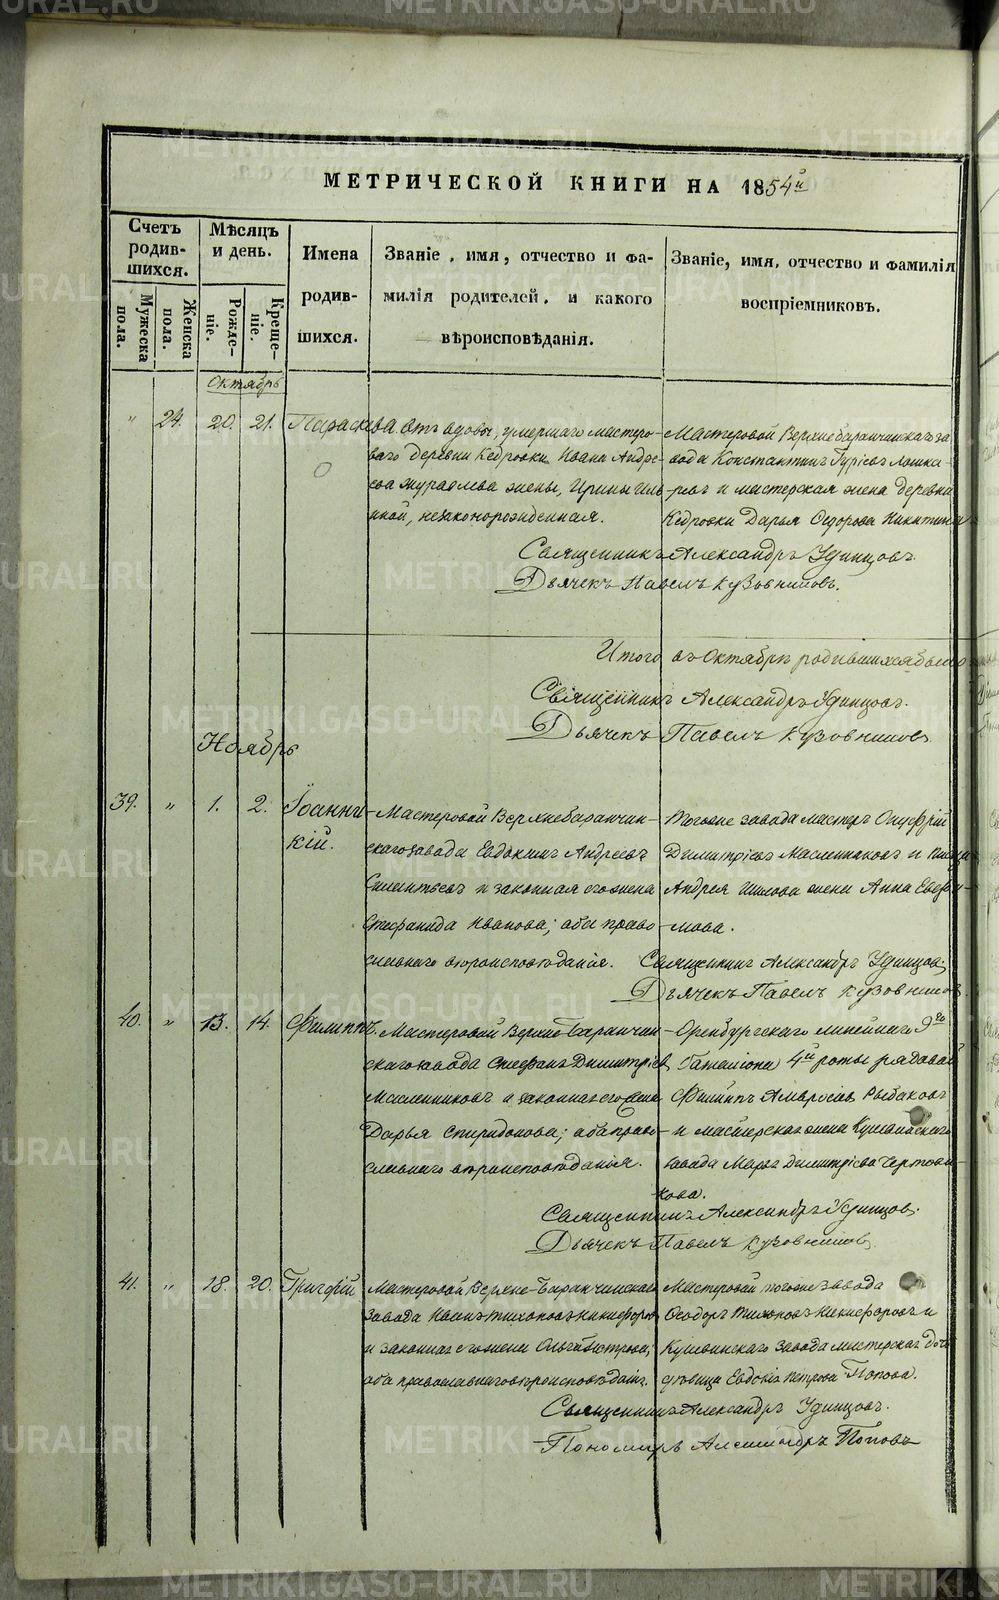 МЕТРИЧЕСКОЙ КНИГИ НА 1854й
Счетъ родив-шихся.
Мѣсяцъ и день.
Имена родив-шихся.
Званіе, имя, отчество и фа-милія родителей, и какого вѣроисповѣданія.
Званіе, имя, отчество и фамилія воспріемниковъ.
Мужеска пола.
Женска пола.
Рожде-ніе.
Креще-ніе.
Октябрь
" 24. 20. 21. Параскева. Отъ вдовы, умершаго мастеро-
ваго деревни Кедровки Ивана Андре-
ева Журавлева жены, Ирины Иль-
иной, незаконорожденная.
Мастеровой Верхнебаранчинскаго за-
вода Константинъ Гурьевъ Лошка-
ревъ и мастерская жена деревни
Кедровки Дарья Ѳедорова Никитина
Священникъ Александръ Удинцовъ.
Дьячекъ Павелъ Кузовниковъ.
Итого въ Октябрѣ родившихся было
Священникъ Александръ Удинцовъ.
Дьячекъ Павелъ Кузовниковъ
Ноябрь
39. " 1. 2. Іоанни-
кій.
Мастеровой Верхнебаранчин-
скаго завода Евдокимъ Андреевъ
и законная его жена
Стефанида Иванова; оба право-
славнаго вѣроисповѣданія.
Тогоже завода мастеръ Онуфрій
Димитріевъ Масленниковъ и
Андрея Шилова жена Анна Евдоки-
мова.
Священникъ Александръ Удинцовъ.
Дьячекъ Павелъ Кузовниковъ.
40. " 13. 14. Филиппъ.
Мастеровой Верхне-Баранчин-
скаго завода Стефанъ Димитріевъ
Масленниковъ и законная его жена
Дарья Спиридонова; оба право-
славнаго вѣроисповѣданія.
Оренбургскаго линейнаго 9го
баталіона 4й роты рядовой
Филиппъ Амвросіевъ Рыбаковъ
и мастерская жена Кушвинскаго
завода Марья Димитріева
кова.
Священникъ Александръ Удинцовъ.
Дьячекъ Павелъ Кузовниковъ.
41. " 18. 20. Григорій
Мастеровой Верхне-Баранчинскаго
завода Иванъ Тихоновъ Никифоровъ
и законная его жена Ольга Петрова;
оба православнаго вѣроисповѣданія.
Мастеровой тогоже завода
Ѳеодоръ Тихоновъ Никифоровъ и
Кушвинскаго завода мастерская дочь
дѣвица Евдокія Петрова Попова.
Священникъ Александръ Удинцовъ.
Пономарь Александръ Поповъ
METRIKI.GASO-URAL.RU